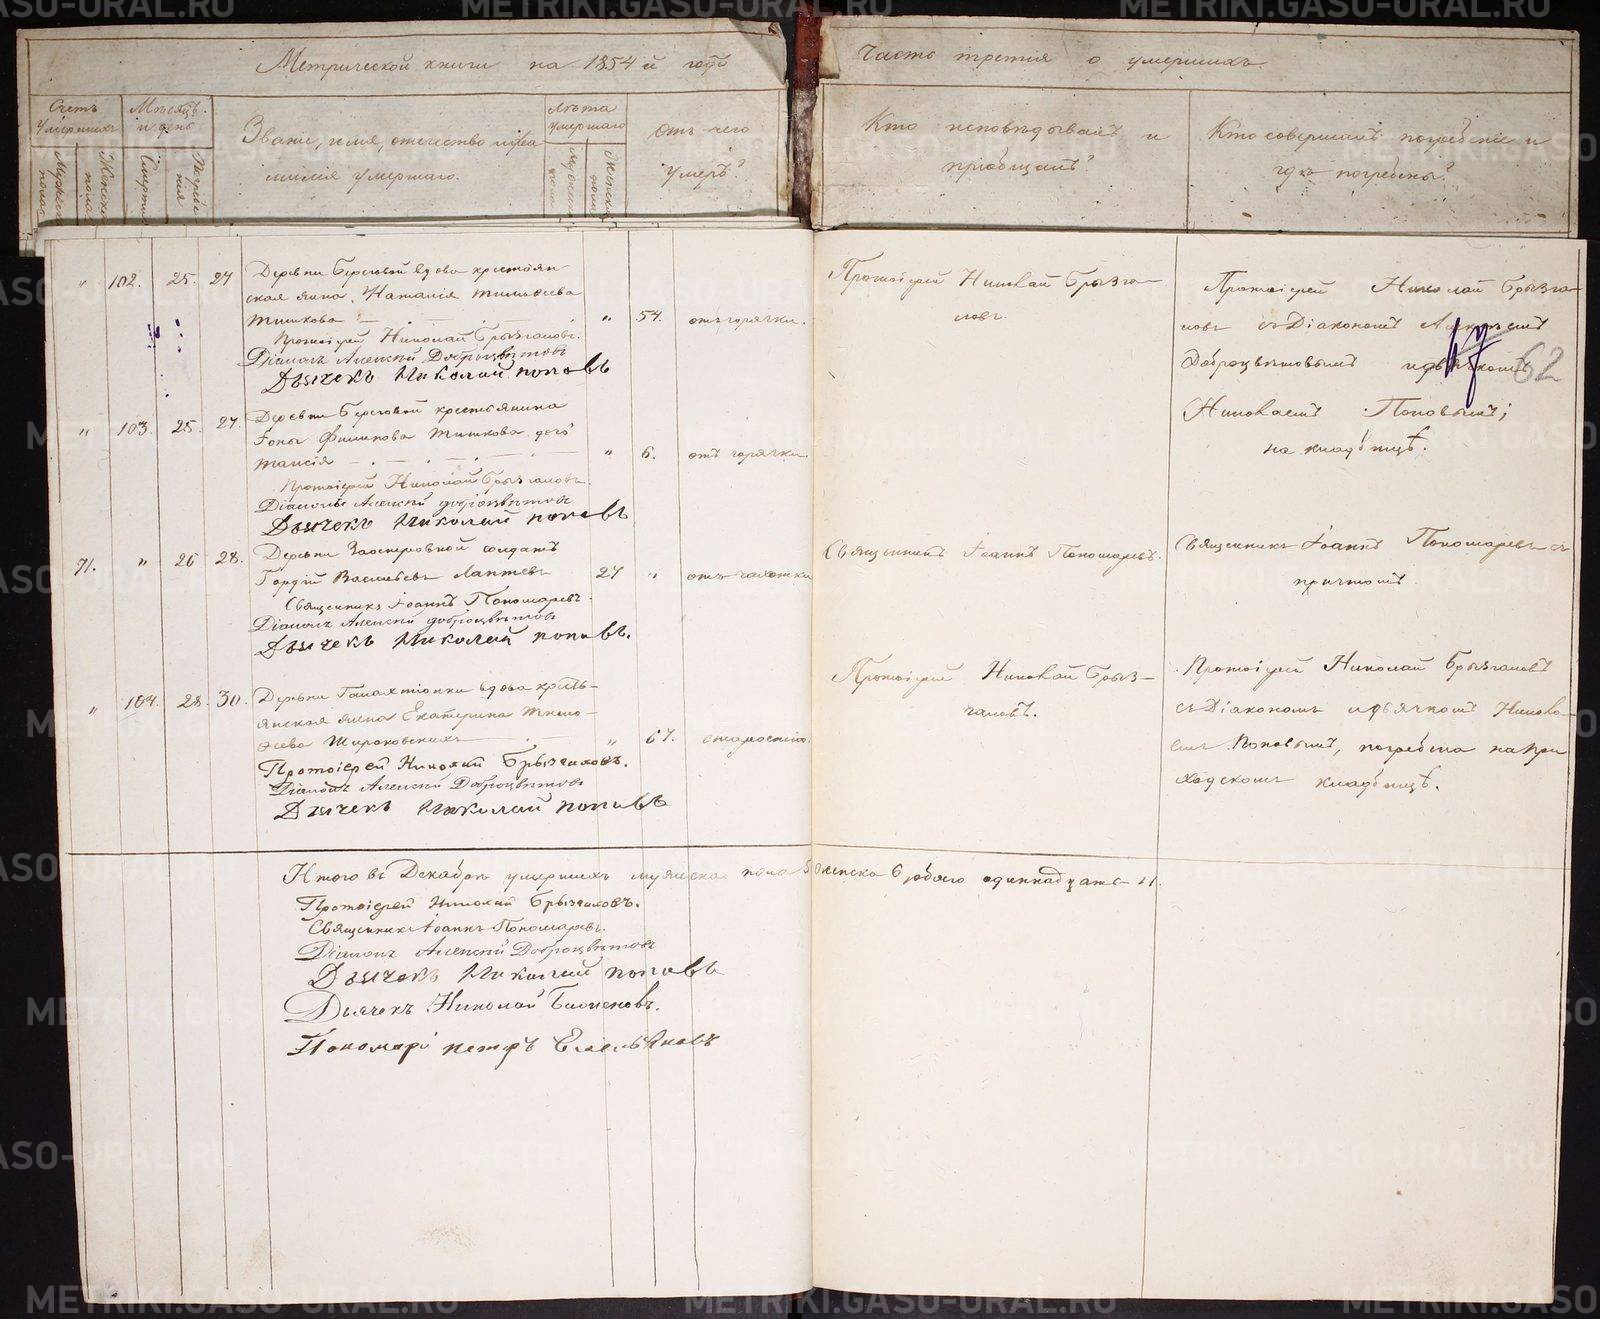 Метрической книги на 1854й годъ
Часть третія о умершихъ.
Счетъ умершихъ
Мѣсяцъ и день
Званіе, имя, отечество и фа
милія умершаго.
Лѣта умершаго
Отъ чего
умеръ?
Кто исповѣдывалъ и
приобщалъ?
Кто совершалъ погребеніе и
гдѣ погребены?
Мужеска пола
Женска пола
Смерти
Погребенія
Мужеска пола
Женска пола
" 102. 25. 27
Деревни Береговой вдова крестьян
ская жена Наталія Тимофеева
Тишкова " 54. отъ горячки.
Протоіерей Николай Брызгаловъ.
Діаконъ Алексѣй Доброцвѣтовъ
Дьячекъ Николай поповъ
Протоіерей Николай Брызга-
ловъ.
Протоіерей Николай Брызга-
ловъ съ Діакономъ Алексѣемъ
Доброцвѣтовымъ и дьячкомъ
Николаемъ Поповымъ;
на кладбищѣ.
62
" 103. 25. 27.
Деревни Береговой крестьянина
Іоны Филипова Тишкова дочь
Таисія " 6. отъ горячки.
Протоіерей Николай Брызгаловъ.
Діаконъ Алексѣй Доброцвѣтовъ
Дьячекъ Николай поповъ
71. " 26 28.
Деревни Заостровной солдатъ
Гордій Васильевъ Лаптевъ 27 " отъ чахотки
Священникъ Іоаннъ Пономаревъ.
Діаконъ Алексѣй Доброцвѣтовъ
Дьячекъ Николай поповъ.
Священникъ Іоаннъ Пономаревъ.
Священникъ Іоаннъ Пономаревъ съ
причтомъ.
" 104. 28. 30.
вдова кресть-
янская жена Екатерина Тимо-
феева Широковскихъ " 67. старостію.
Протоіерей Николай Брызгаловъ.
Діаконъ Алексѣй Доброцвѣтовъ
Дьячекъ Николай поповъ
Протоіерей Николай Брыз-
галовъ.
Протоіерей Николай Брызгаловъ
съ Діакономъ и дьячкомъ Никола-
емъ Поповымъ, погребена на при
ходскомъ кладбищѣ.
Итого въ Декабрѣ умершихъ мужеска пола 5 женска 6 обоего одиннадцать 11.
Протоіерей Николай Брызгаловъ.
Священникъ Іоаннъ Пономаревъ.
Діаконъ Алексѣй Доброцвѣтовъ
Дьячекъ Николай поповъ
Дьячекъ Николай
Пономарь петръ
METRIKI.GASO-URAL.RU